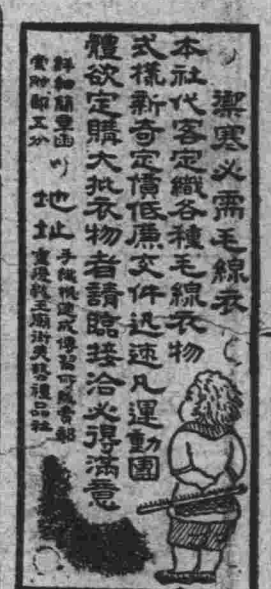 禦寒必需毛線衣
本社代客定織各種毛線衣物
式樣新奇定價低廉交件迅速凡運動團
體欲定購大批衣物者請臨接洽必得滿意
詳細簡章函
地址
手織機速成傳習可販賣部
重慶
廟街天
禮品社